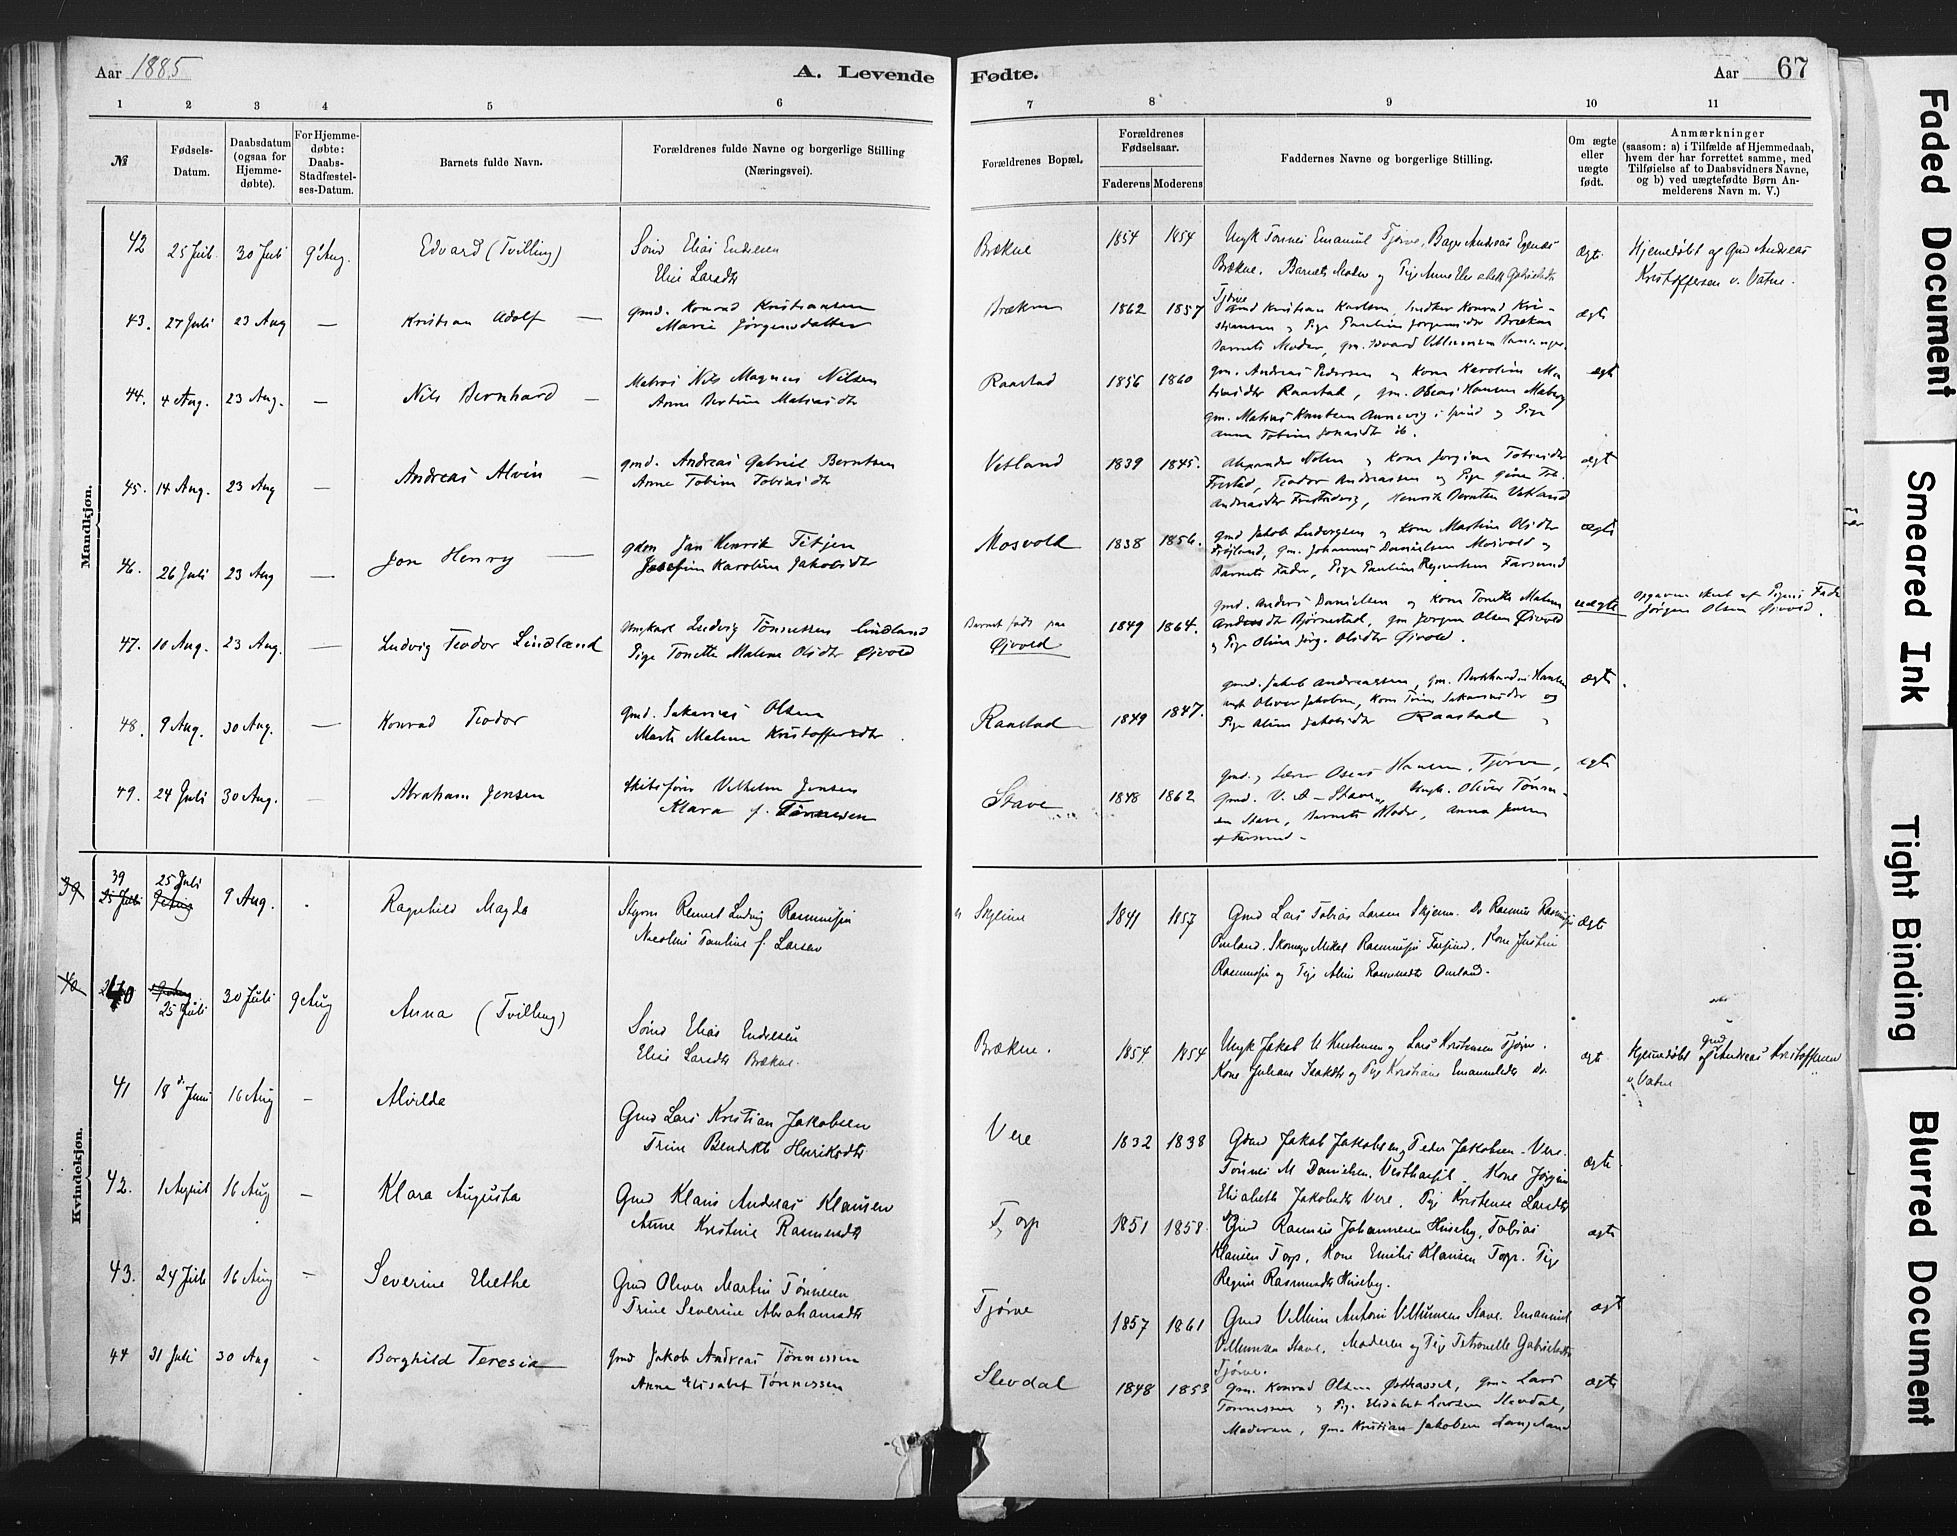 Aar 1885
A. Levende
Fødte.
Aar
67
1 2 3 4 5 6 7 8 9 10 11
№
Fødsels-
Datum.
Daabsdatum
(ogsaa for
Hjemme-
døbte).
For Hjemme-
døbte:
Daabs-
Stadfæstel-
ses-Datum.
Barnets fulde Navn.
Forældrenes fulde Navne og borgerlige Stilling
(Næringsvei).
Forældrenes Bopæl.
Forældrenes
Fødselsaar.
Faderens Moderens
Faddernes Navne og borgerlige Stilling.
Om ægte
eller
uægte
født.
Anmærkninger
(saasom: a) i Tilfælde af Hjemmedaab,
hvem der har forrettet samme, med
Tilføielse af to Daabsvidners Navne,
og b) ved uægtefødte Børn An-
melderens Navn m. V.)
Mandkjøn.
42 25 Juli 30 Juli 9 Aug. Edvard (Tvilling)
Elias Endresen
Elise Larsdtr
Brækne 1854 1854
Brækne. Barnets Moder og Pige
Ægte
Hjemmedøbt af Gmd Andreas
Kristoffersen v. Vatne.
43. 27 Juli 23 Aug — Kristian Adolf —
gmd. Konrad Kristiansen
Marie Jørgensdatter
Brækne 1862 1857
Tjørve
Kristian Karlsen, Konrad Kri-
stiansen og Pige Pauline Jørgensdtr Brækne
Barnets Moder, gm.
ægte
44. 4 Aug. 23 Aug. — Nils Bernhard —
Matros Nils Magnus Nilsen
Anne Bertine Matiasdtr
Raastad 1856 1860
gm. Andreas Pedersen og Kone Karoline Ma-
tiasdtr Raastad, gm. Oseas Hansen
gm. Matias Knutsen i Spind og Pige
Anna Tobine Jonasdtr ib.
ægte
45. 14 Aug. 23 Aug — Andreas Alvin —
gmd. Andreas Gabriel Berntsen
Anne Tobine Tobiasdtr
Vetland 1839 1845.
og Kone Jorgine Tobiasdtr
Teodor Andreassen og Pige
Andreasdtr Henrik Berntsen Vetland
ægte
46. 26 Juli 23 Aug — Jon Henry —
Jan Henrik Titjen
Josefine Karoline Jakobsdtr
Mosvold 1838 1856.
gmd Jakob Ludvigsen og Kone Martine Olsdtr
gm. Johannes Danielsen Mosvold og
Barnets Fader, Pige Pauline Farsund
ægte
47. 10 Aug. 23 Aug. — Ludvig Teodor Lindland
Ungkarl Ludvig Tønnessen Lindland
Pige Tonette Malene Olsdtr Øjvold
Barnet født paa
Øjvold
1849 1864.
gmd. Anders Danielsen og Kone Tonette Malene
Andersdtr Bjørnestad, gm Jørgen Olsen Øjvold
og Pige Oline Olsdtr Øjvold.
uægte
Opgaven af Pigens Fader
Jørgen Olsen Øjvold.
48. 9 Aug. 30 Aug. — Konrad Teodor
Gmd. Sakarias Olsen
Marte Malene Kristoffersdtr
Raastad 1849 1847.
gmd. Jakob Andreassen, gm. Hansen
Oliver Jakobsen, Kone Sakariasdtr og
Pige Jakobsdtr Raastad
ægte
49. 24 Juli 30 Aug. — Abraham Jensen
Skibsfører Vilhelm Jensen
Klara f. Tønnesen
Stave 1848 1862
gmd. og Lærer Oseas Hansen, Tjørve,
Gmd. V. A Stave, Ungk. Oliver Tønne-
sen Stave, Barnets Moder, Anna Jensen
af Farsund
ægte
Kvindekjøn.
39
39 25 Juli 25 Juli 9 Aug 9 Aug. Ragnhild Magda
Styrm Ludvig Rasmussen
Nicoline Pauline f. Larsen
Skjeime 1841 1857
Gmd Lars Tobias Larsen Skjeime. Do Rasmus Rasmussen
Omland. Skomager Mikal Rasmussen Farsund. Kone Justine
Rasmussen og Pige Rasmusdtr Omland.
Ægte
40 40 25 Juli 30 Juli 9 Aug Anna (Tvilling)
Elias Endresen
Elise Larsdtr Brækne.
Brækne. 1854 1854
Ungk Jakob Kristensen og Lars Kristensen Tjørve.
Kone Juliane Isaksdtr og Pige Kristiane Emanuelsdtr do.
ægte.
Hjemmedøbt af Gmd Andreas Kristoffersen
v. Vatne
41 18 Juni 16 Aug — Alvilda
Gmd Lars Kristian Jakobsen
Trine Bendikte Henriksdtr
Vere 1832 1838
Gmd Jakob Jakobsen og Peder Jakobsen Vere.
Tønnes M Danielsen, Vesthassel. Kone Jørgine
Elisabeth Jakobsdtr Vere. Pige Kristense Larsdtr
ægte
42. 1 August 16 Aug — Klara Augusta
Gmd Klaus Andreas Klausen
Anne Kristine Rasmusdtr
Torp 1851 1858
Gmd Rasmus Johannesen Huseby, Tobias
Klausen Torp, Kone Emilie Klausen Torp. Pige
Regine Rasmusdtr Huseby.
ægte
43. 24 Juli 16 Aug — Severine Elrethe
Gmd Oliver Martin Tønnesen
Trine Severine Abrahamsdtr
Tjørve 1857 1861
Gmd Villum Antoni Villumsen Stave. Emanuel
Villumsen Stave. Moderen og Pige Petronelle Gabrielsdtr
Tjørve.
ægt
44 31 Juli 30 Aug - Borghild Teresia
gmd Jakob Andreas Tønnessen
Anne Elisabet Tønnessen
Slevdal 1848 1853
gm. Konrad Olsen Østhassel, gm. Lars
Tønnessen og Pige Elisabet Larsen Slevdal,
Moderen, gm. Kristian Jakobsen Langeland
ægte
Faded Document
Smeared Ink
Tight Binding
Blurred Document